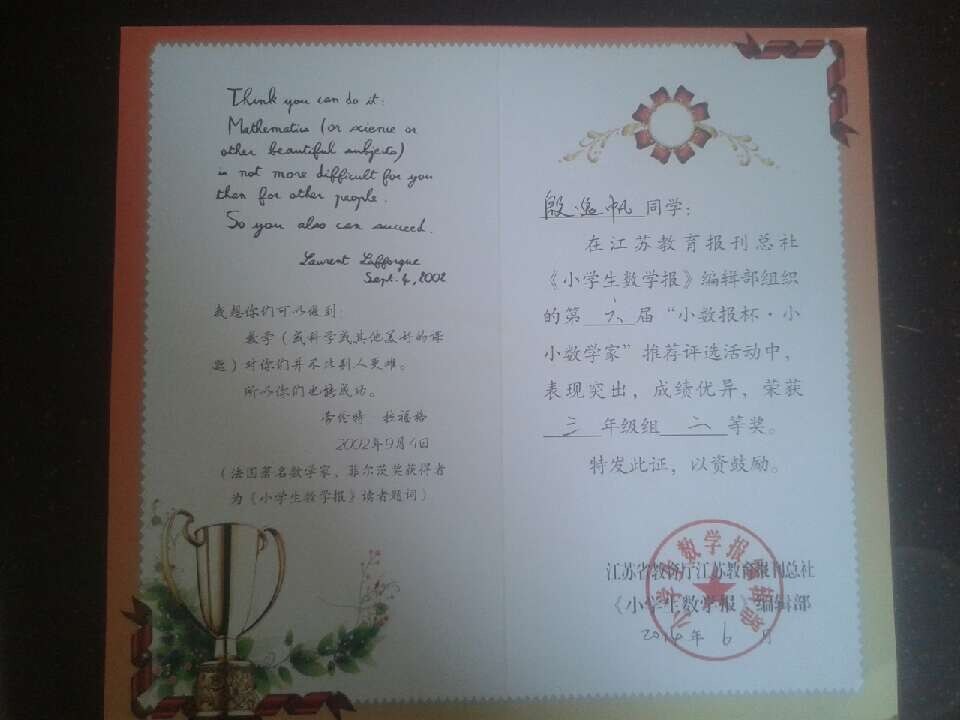 Think you can do it:
Mathematics (or science or
other beautiful subjects)
is not more difficult for you
than for other people.
So you also can succeed.
Laurent Lafforgue
Sept. 4, 2002
我想你们可以做到:
数学(或科学或其他美好的课
题)对你们并不比别人更难。
所以你们也能成功。
劳伦特·拉福格
2002年9月4日
(法国著名数学家、菲尔茨奖获得者
为《小学生数学报》读者题词)
殷 帆 同学:
在江苏教育报刊总社
《小学生数学报》编辑部组织
的第 六 届“小数报杯·小
小数学家”推荐评选活动中,
表现突出,成绩优异,荣获
三 年级组 二 等奖。
特发此证,以资鼓励。
江苏省教育厅江苏教育报刊总社
《小学生数学报》编辑部
2014年 6 月
小学生数学报编辑部